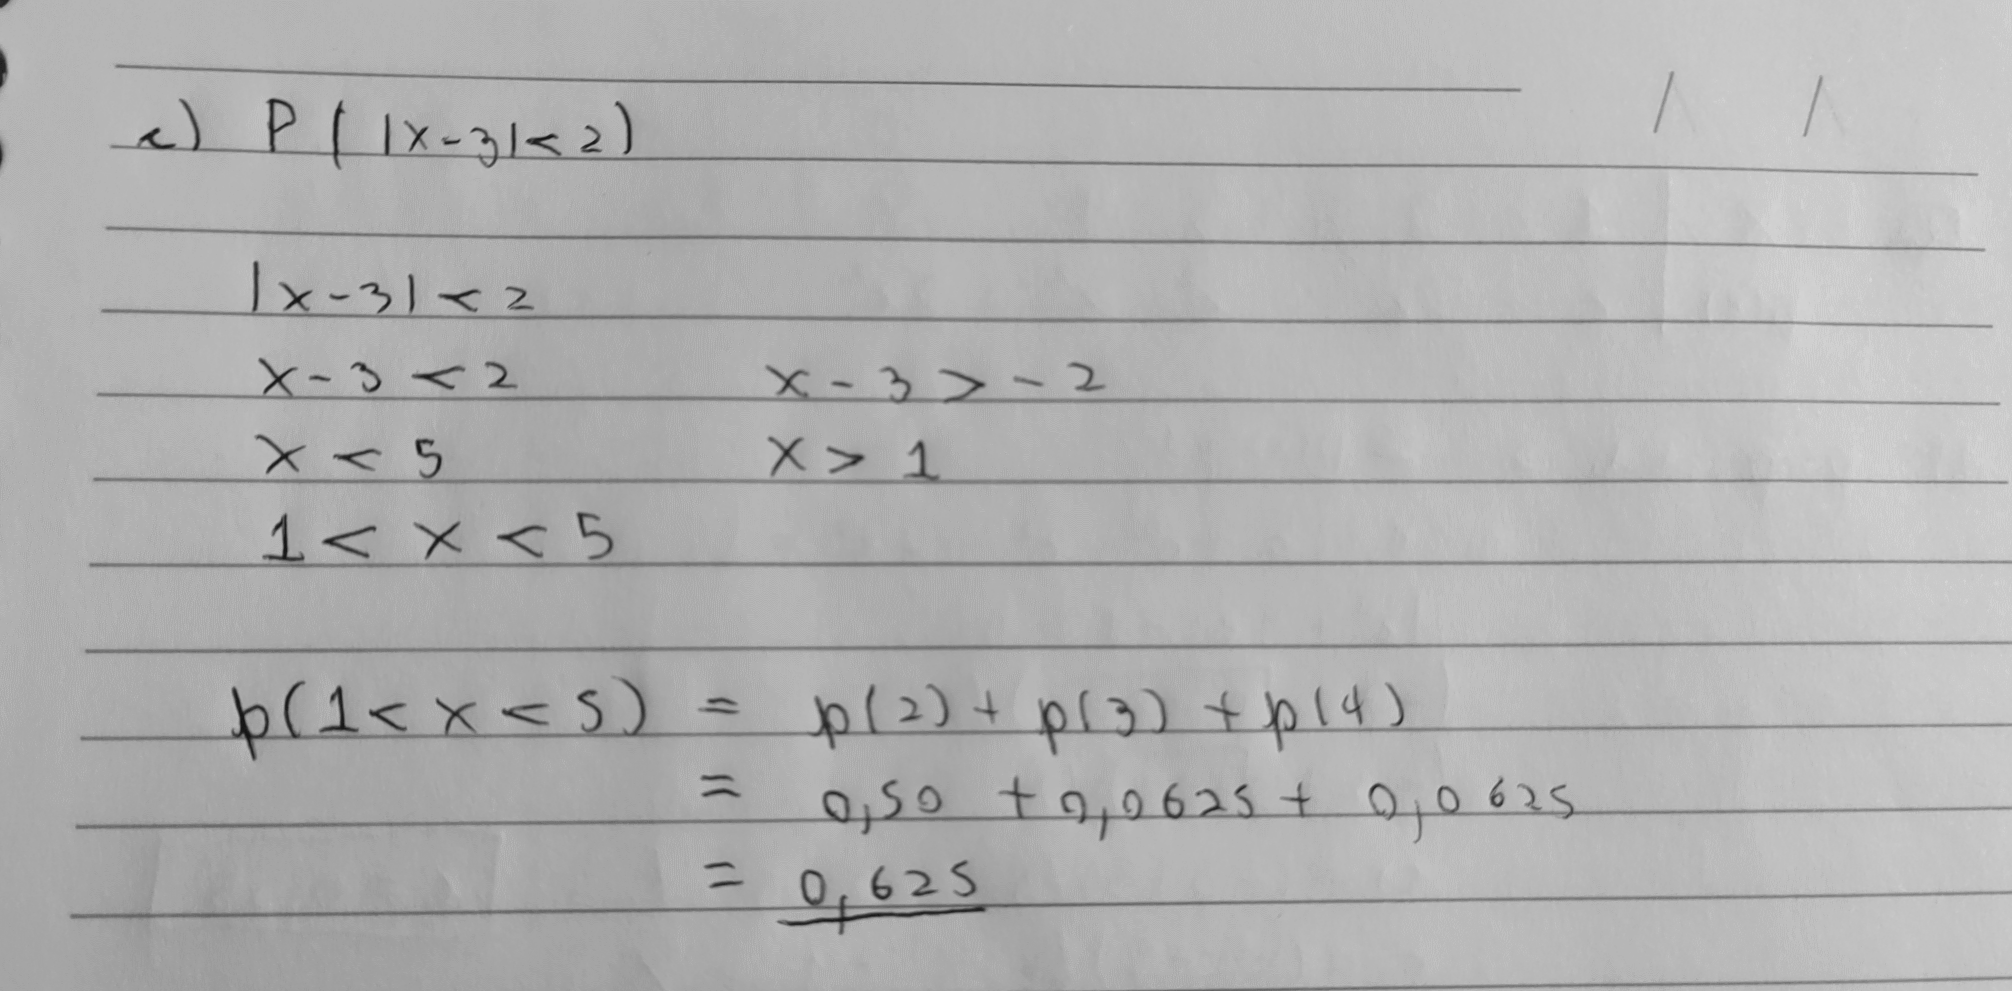 c) P(|x-3|<2)
|x-3|<2
x-3<2 x-3>-2
x<5 x>1
1<x<5
p(1<x<5) = p(2)+p(3)+p(4)
= 0,50 + 0,0625 + 0,0625
= 0,625